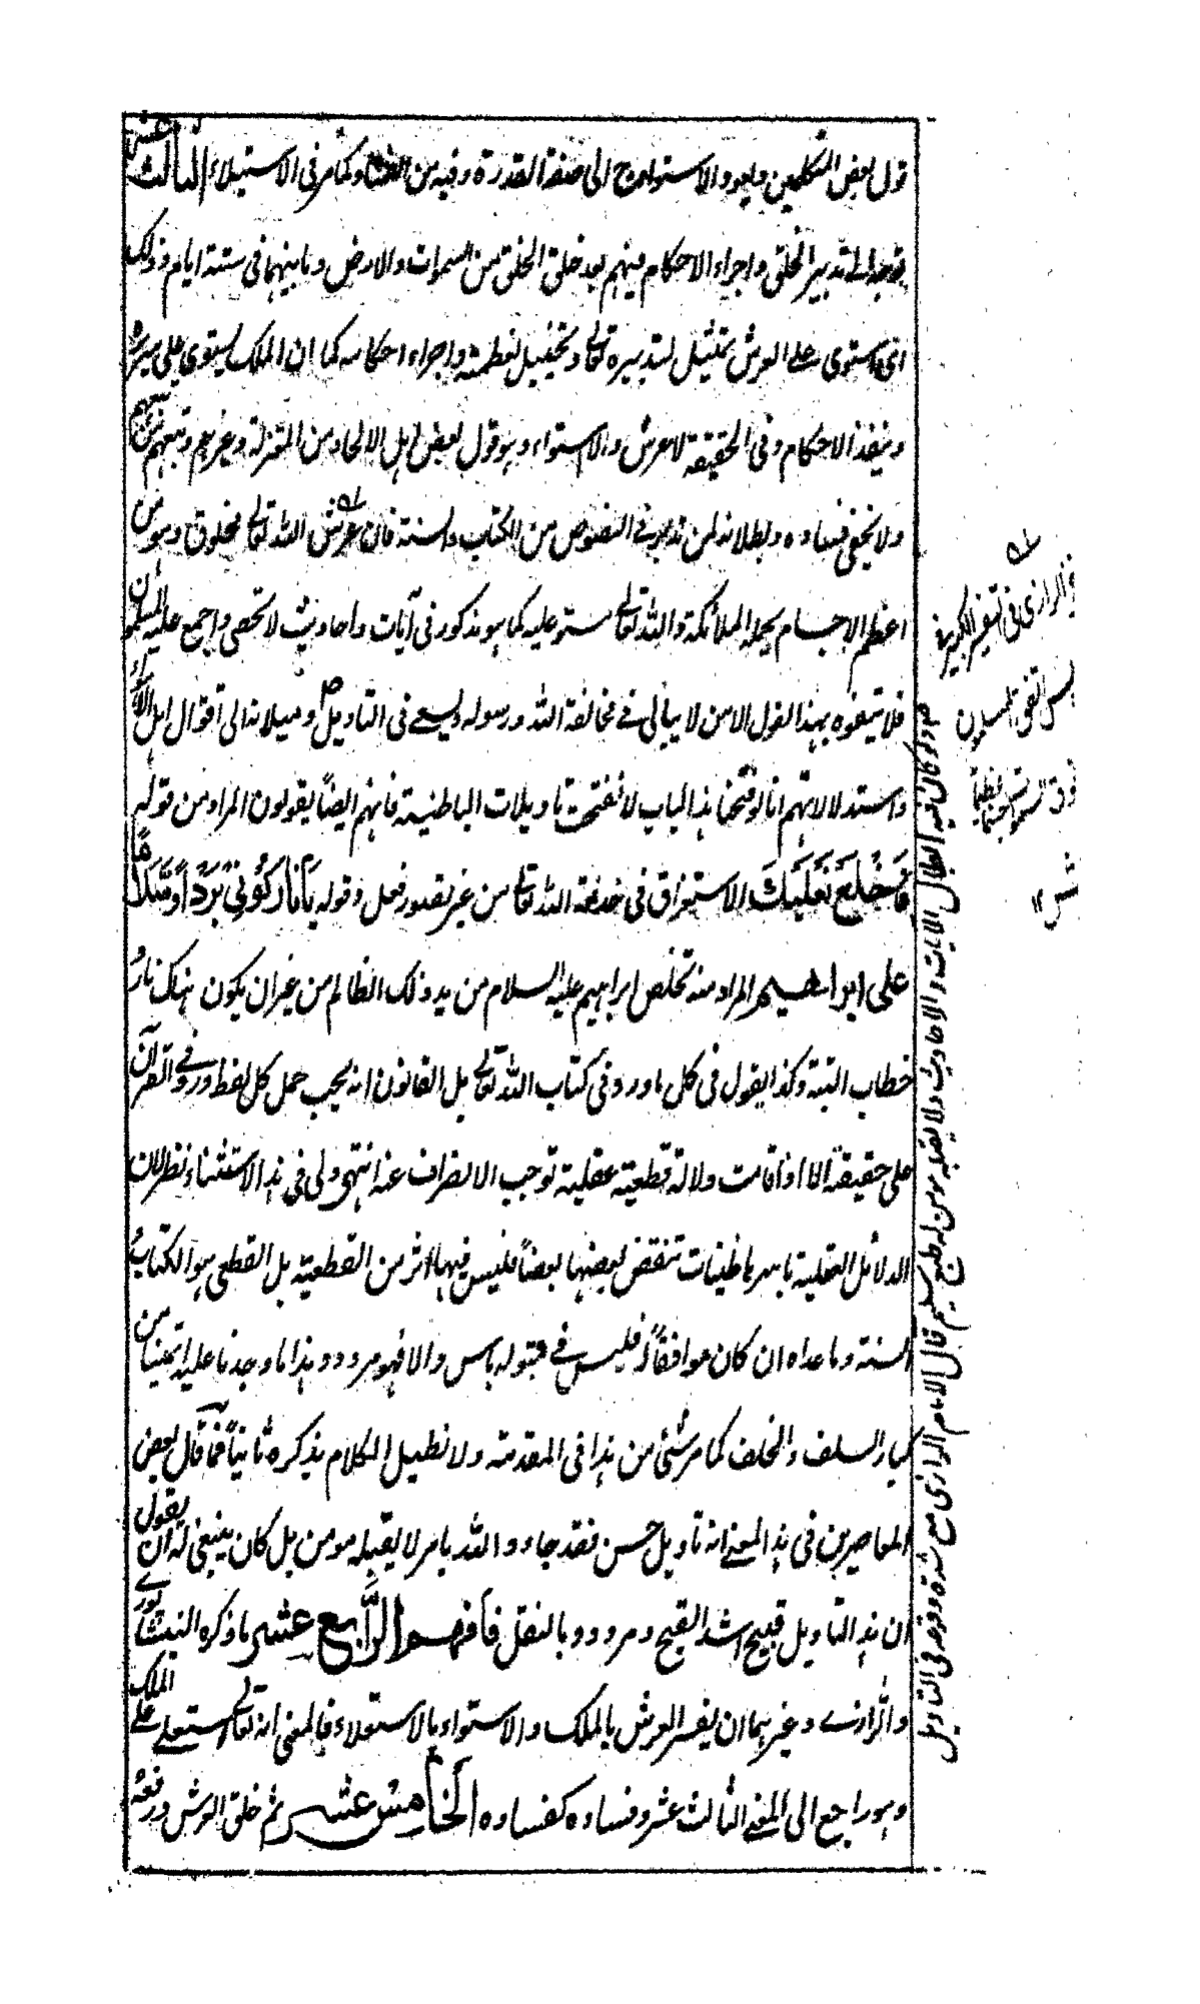 قول بعض المتكلمين وهو والاستواء راجع الى صفة القدرة وفيه من الفساد كما مر فى الاستيلاء الثالث عشر
توجه الى تدبير الخلق واجراء الاحكام فيهم بعد خلق الخلق من السموات والارض وما بينهما فى ستة ايام وذلك
اى استوى على العرش تمثيل لتدبيره تعالى وتخييل لعظمته واجراء احكامه كما ان الملك يستوى على سريره
وينفذ الاحكام وفى الحقيقة لا عرش ولا استواء وهو قول بعض اهل الالحاد من المعتزلة وغيرهم وتبعهم من تبعهم
ولا يخفى فساده وبطلانه لمن تدبر فى النصوص من الكتاب والسنة فان عرش الله تعالى مخلوق وهو من
اعظم الاجسام يحمله الملائكة والله تعالى مستو عليه كما هو مذكور فى آيات واحاديث لا تحصى واجمع عليه المسلمون
فلا يتفوه بهذا القول الا من لا يبالى فى مخالفة الله ورسوله ويسعى فى التاويل وميلانه الى اقوال اهل الآراء
واستدلالاتهم انا لو فتحنا هذا الباب لانفتحت تاويلات الباطنية فانهم ايضًا يقولون المراد من قوله
فَاخْلَعْ نَعْلَيْكَ الاستغراق فى خدمة الله تعالى من غير تصور فعل وقوله يَا نَارُ كُوْنِيْ بَرْدًا وَّسَلَامًا
على ابراهيم المراد منه تخلص ابراهيم عليه السلام من يد ذلك الظالم من غير ان يكون هناك نار و
خطاب البتة وكذا القول فى كل ما ورد فى كتاب الله تعالى بل القانون انه يجب حمل كل لفظ ورد فى القرآن
على حقيقة الا اذا قامت دلالة قطعية عقلية توجب الانصراف عنه انتهى ولى فى هذا الاستثناء نظر لان
الدلائل العقلية باسرها ظنيات تنقض بعضها بعضًا فليس فيها اثر من القطعية بل القطعى هو الكتاب و
السنة وما عداه ان كان موافقًا فليس فى قبوله باس والا فهو مردود هذا ما وجدنا عليه ائمتنا من
كبار السلف والخلف كما مر شئ من هذا فى المقدمة ولا نطيل الكلام بذكره ثانيًا فما قال بعض
المعاصرين فى هذا المعنى انه تاويل حسن فقد جاء والله بامر لا يقبله مومن بل كان ينبغى له ان يقول
ان هذا التاويل قبيح اشد القبح ومردود بالنقل فافهم الرَّابع عشر ما ذكره النيشاپورى
والرازى وغيرهما ان يفسر العرش بالملك والاستواء بالاستعلاء فالمعنى انه تعالى استعلى على الملك
وهو راجع الى المعنى الثالث عشر وفساده كفساده الخامس عشر ثم خلق العرش ورفعه
الرازى فى تفسير الكبير
اتفق المسلمون
فوق السموات
الآيات والاحاديث ولا يتفوه به مومن له طبع سليم قال الامام الرازى مع شدة وقوعه فى التاويل